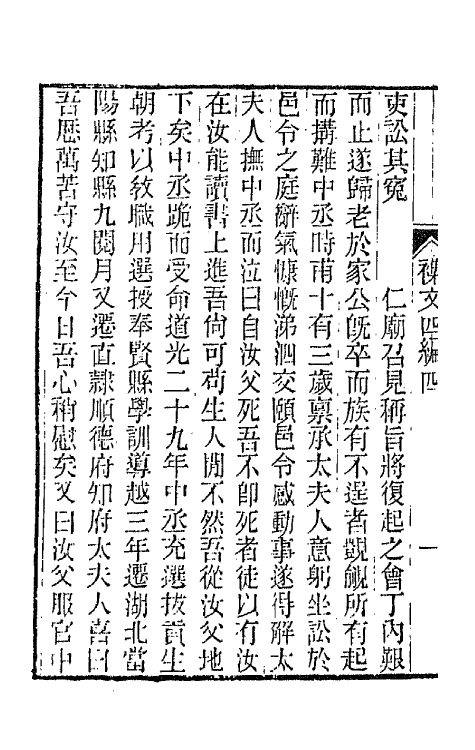 襍文四編四
一
吏訟其冤　仁廟召見稱旨將復起之會丁內艱
而止遂歸老於家公旣卒而族有不逞者覬覦所有起
而搆難中丞時甫十有三歲禀承太夫人意躬坐訟於
邑令之庭辭氣慷慨涕泗交頤邑令感動事遂得解太
夫人撫中丞而泣曰自汝父死吾不卽死者徒以有汝
在汝能讀書上進吾尙可苟生人閒不然吾從汝父地
下矣中丞跪而受命道光二十九年中丞充選拔貢生
朝考以敎職用選授奉賢縣學訓導越三年遷湖北當
陽縣知縣九閱月又遷直隸順德府知府太夫人喜曰
吾厯萬苦守汝至今日吾心稍慰矣又曰汝父服官中